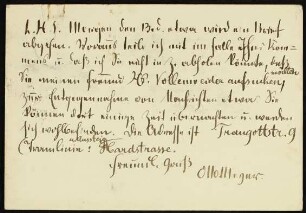 L. H. S. Morgen den 3ed. etwa wird ein Brief
abgehen. Voraus teile ich mit im Falle Ihres Kom-
mens u. daß ich Sie nicht in Z. abholen könnte, daß
Sie meinen Freund Vollenweider aufsuchen möchten
zur Entgegennahme von Nachrichten etwa. Sie
können dort einige Zeit übernachten u. werden
sich wohlbefinden. Die Adresse ist Traugottstr. 9
(Tramlinie: Hardstrasse.
freundl. Gruß
Otto Meyer